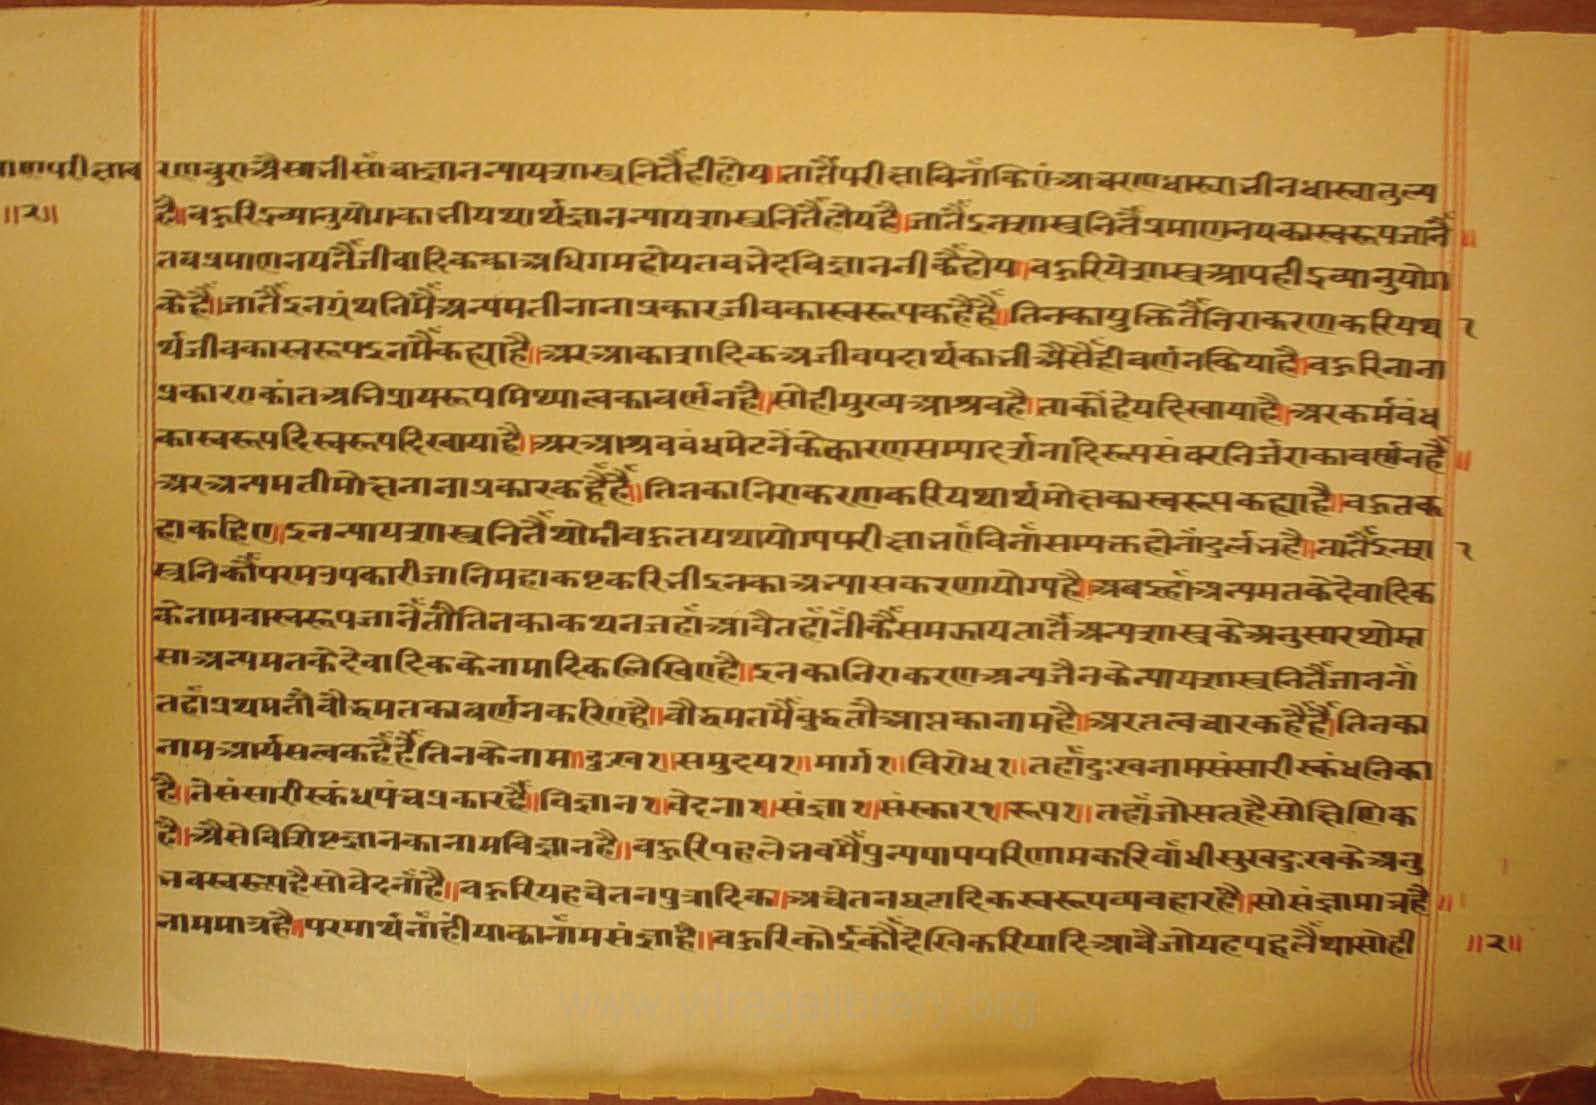 माणपरीक्षाव
॥२॥
रणवुरा अैसा भी सांचा ज्ञान न्यायशास्त्रनितैं ही होय॥तातैं परीक्षा विनां किएं आचरण धास्या भी न धास्या तुल्य
है॥वहुरि द्रव्यानुयोग का भी यथार्थ ज्ञान न्यायशास्त्रनितैं होय है॥जातैं इन शास्त्रनितैं प्रमाण नय का स्वरूप जानैं॥
तव प्रमाण नयतैं जीवादिक का अधिगम होय तव भेदविज्ञान नीकैं होय॥वहुरि ये शास्त्र आप ही द्रव्यानुयोग
के हैं॥जातैं इन ग्रंथनिमैं अन्यमती नाना प्रकार जीव का स्वरूप कहैं हैं॥तिनका युक्तितैं निराकरण करि यथा
र्थ जीव का स्वरूप इनमैं कह्या है॥अर आकाशादिक अजीव पदार्थ का भी अैसैं ही वर्णन किया है॥वहुरि नाना
प्रकार एकांत अभिप्रायरूप मिथ्यात्व का वर्णन है॥सो ही मुख्य आश्रव है॥ताकों हेय दिखाया है॥अर कर्मवंध
का स्वरूप दि स्वरूप दिखाया है॥अर आश्रव वंध मेटनें के कारण सम्यग्दर्शनादिरूप संवर निर्जरा का वर्णन है॥
अर अन्यमती मोक्ष नाना प्रकार कहैं हैं॥तिनका निराकरण करि यथार्थ मोक्ष का स्वरूप कह्या है॥वहुत क
हा कहिए॥इन न्यायशास्त्रनितैं थोडी वहुत यथायोग्य परीक्षा भएं विनां सम्यक्त होनां दुर्लभ है॥तातैं इन शा
स्त्रनिकौं परम उपकारी जानि महाकष्ट करि भी इनका अभ्यास करणा योग्य है॥अव इहां अन्यमत के देवादिक
के नाम वा स्वरूप जानैं तौ तिनका कथन जहां आवै तहां नीकैं समझाय तातैं अन्यशास्त्र के अनुसार थोडा
सा अन्यमत के देवादिक के नामादिक लिखिए है॥इनका निराकरण अन्य जैन के न्यायशास्त्रनितैं जाननों
तहां प्रथम तौ वौद्धमत का वर्णन करिए है॥वौद्धमतमैं वुद्ध तौ आप्त का नाम है॥अर तत्व चार कहैं हैं॥तिनका
नाम आर्यसत्व कहैं हैं तिनके नाम॥दुःख१॥समुदय१॥मार्ग१॥विरोध१॥तहां दुःख नाम संसारी स्कंधनिका
है॥ते संसारी स्कंध पंच प्रकार हैं॥विज्ञान१॥वेदना१॥संज्ञा१॥संस्कार१॥रूप१॥तहां जो सत् है सो क्षिणिक
है॥अैसे विशिष्ट ज्ञान का नाम विज्ञान है॥वहुरि पहले भवमैं पुन्य पाप परिणाम करि वांधी सुख दुःख के अनु
भवस्वरूप है सो वेदनां है॥वहुरि यह चेतन पुत्रादिक॥अचेतन घटादिक स्वरूप व्यवहार है॥सो संज्ञामात्र है॥
नाममात्र है॥परमार्थ नांहीं याका नांम संज्ञा है॥वहुरि कोई कौं देखि करि यादि आवै जो यह पहलैं था सो ही
॥२॥
www.vitragalibrary.org